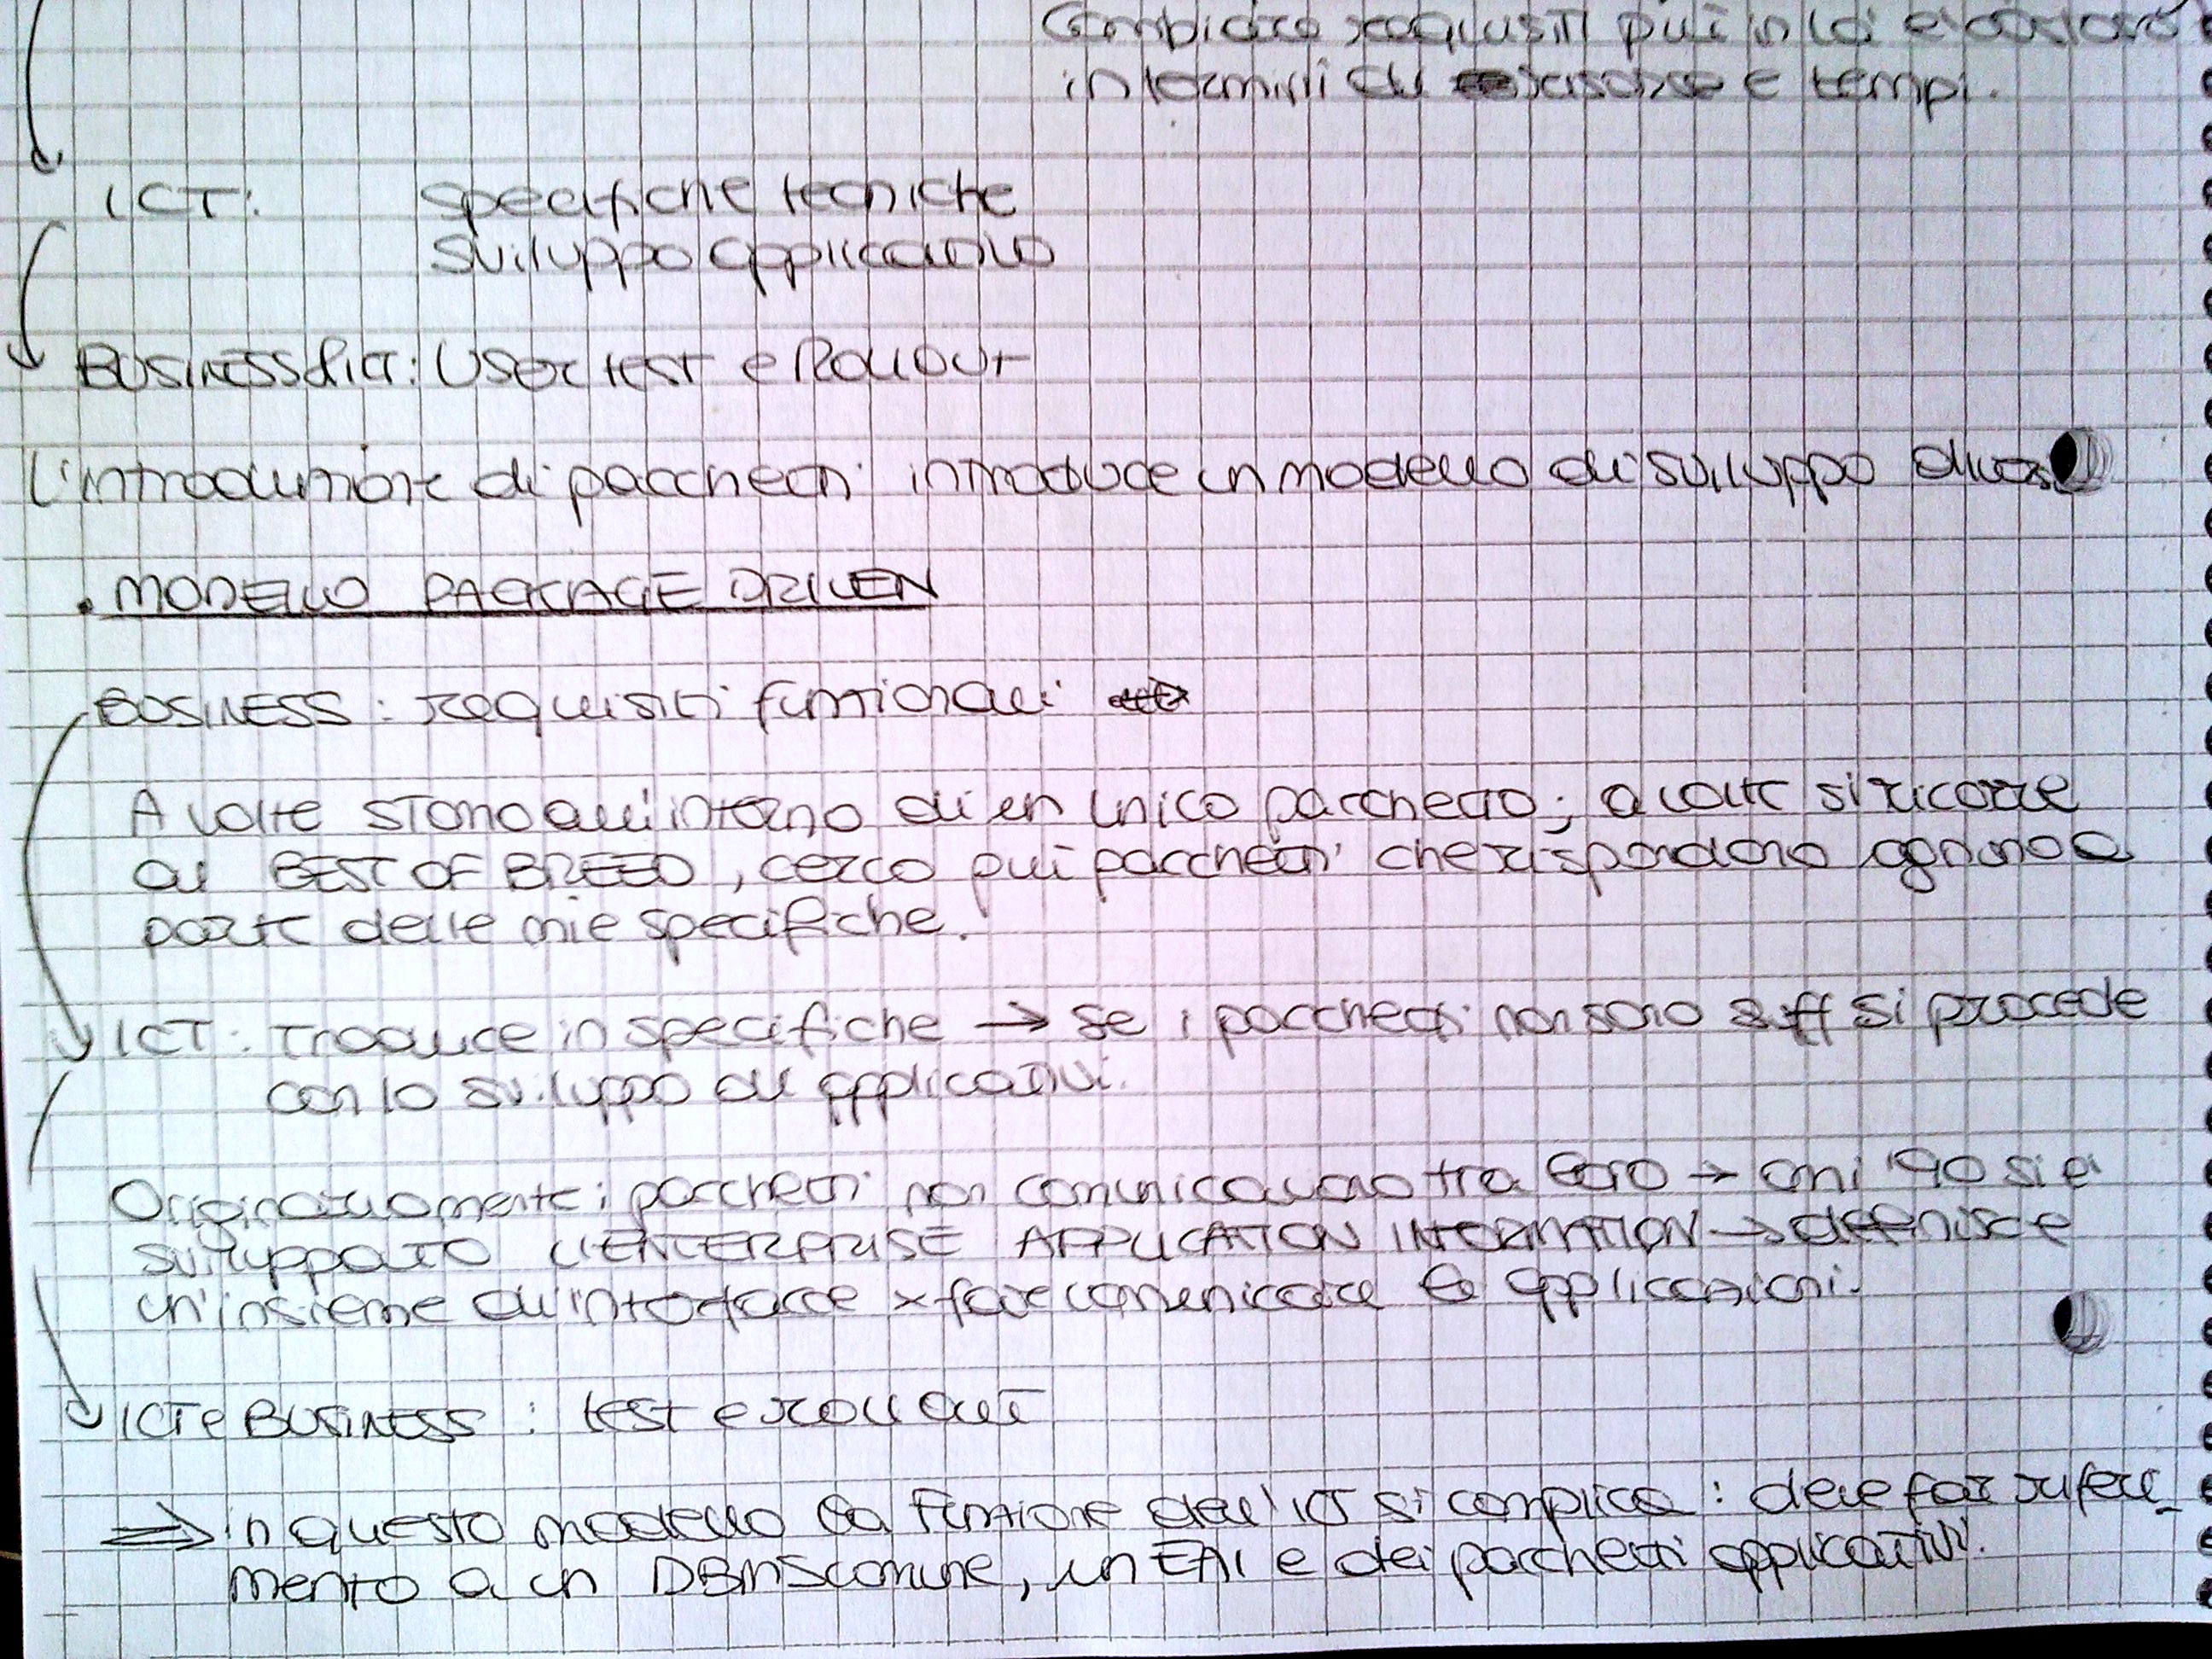 Cambiare requisiti più in là è costoso
in termini di risorse e tempi.
ICT: specifiche tecniche
sviluppo applicativo
BUSINESS & ICT: User test e Rollout
L'introduzione di pacchetti introduce un modello di sviluppo diverso
• MODELLO PACKAGE DRIVEN
BUSINESS: requisiti funzionali
A volte stanno all'interno di un unico pacchetto; a volte si ricorre
al BEST OF BREED, cerco più pacchetti che rispondono ognuno a
parte delle mie specifiche.
ICT: traduce in specifiche → se i pacchetti non sono suff si procede
con lo sviluppo di applicativi.
Originariamente i pacchetti non comunicavano tra loro → anni '90 si è
sviluppato L'ENTERPRISE APPLICATION INFORMATION → definisce
un'insieme di interfacce x fare comunicare le applicazioni.
ICT e BUSINESS: test e roll out
⇒ in questo modello la funzione dell'ICT si complica: deve far riferi_
mento a un DBMS comune, un EAI e dei pacchetti applicativi.